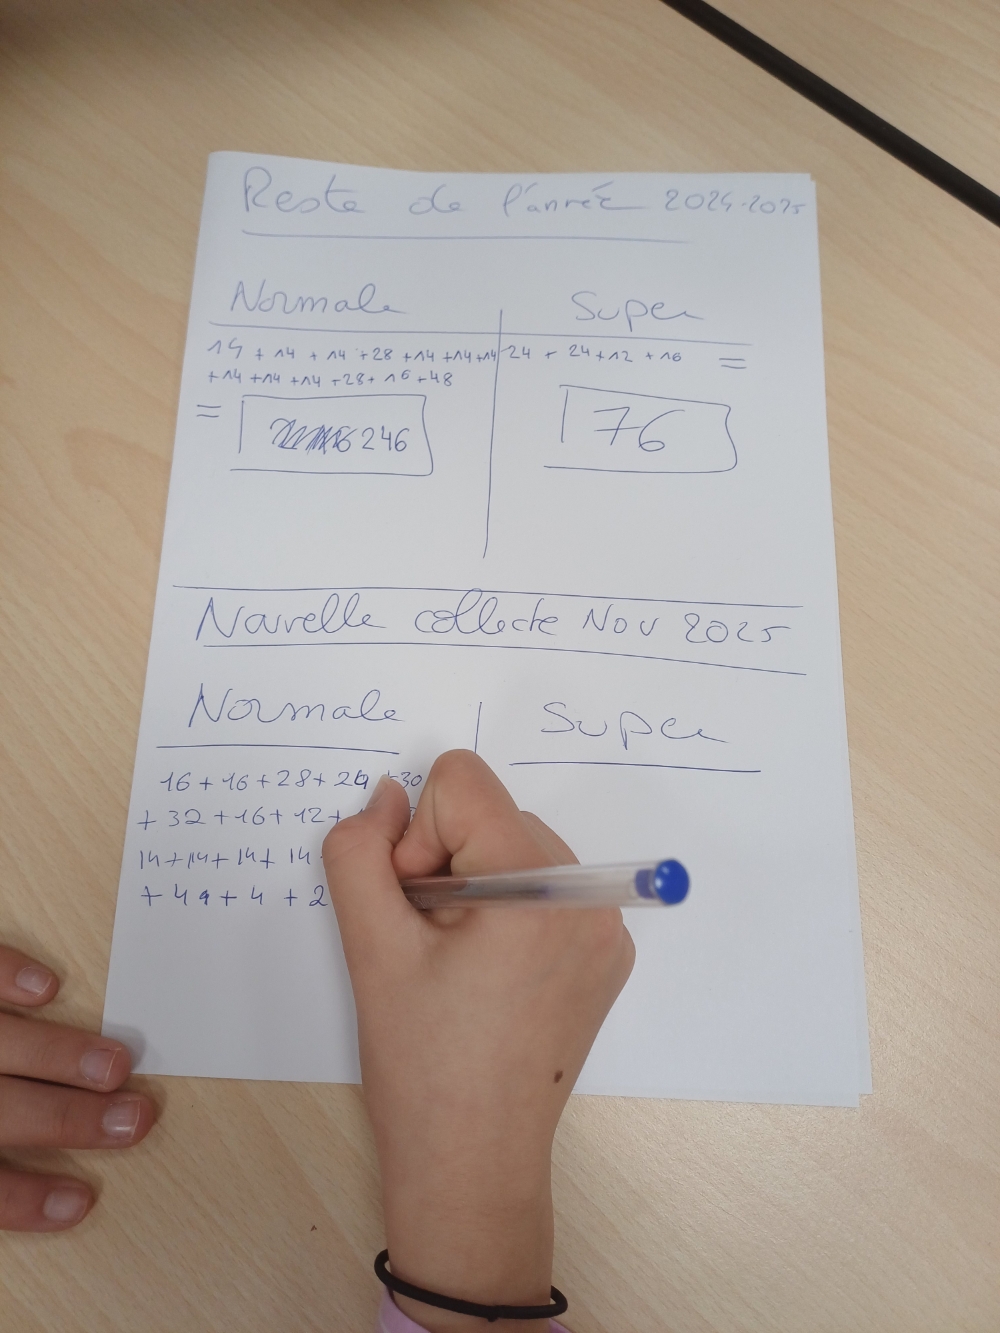 Reste de l'année 2024-2025
Normale
Super
14 + 14 + 14 + 28 + 14 + 14 + 14
+ 14 + 14 + 14 + 28 + 16 + 48
= 246
24 + 24 + 12 + 16 =
76
Nouvelle collecte Nov 2025
Normale
Super
16 + 16 + 28 + 24 + 30
+ 32 + 16 + 12 +
14 + 14 + 14 + 14
+ 4 + 2